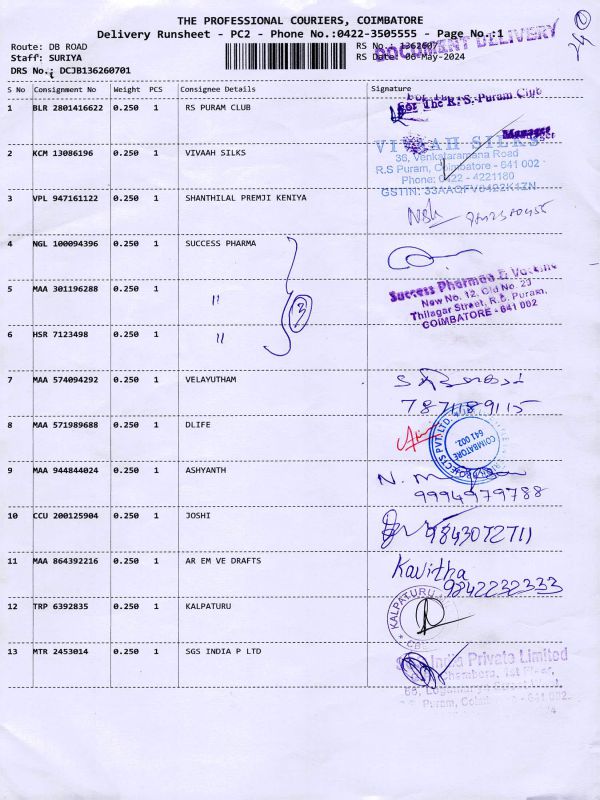 THE PROFESSIONAL COURIERS, COIMBATORE
Delivery Runsheet - PC2 - Phone No.:0422-3505555 - Page No.:1
Route: DB ROAD
Staff: SURIYA
DRS No.: DCJB136260701
RS No.: 1362607
RS Date: 06-May-2024
DOCUMENT DELIVERY
S No Consignment No Weight PCS Consignee Details Signature
1 BLR 2801416622 0.250 1 RS PURAM CLUB
For The R. S. Puram Club
Manager
2 KCM 13086196 0.250 1 VIVAAH SILKS
VIVAAH SILKS
36, Venkataramana Road
R.S Puram, Coimbatore - 641 002
Phone: 0422 - 4221180
GSTIN: 33AAQFV0422K1ZN
3 VPL 947161122 0.250 1 SHANTHILAL PREMJI KENIYA
4 NGL 100094396 0.250 1 SUCCESS PHARMA
5 MAA 301196288 0.250 1 "
6 HSR 7123498 0.250 1 "
3
Success Pharma &
New No. 12, Old No. 23
Thilagar Street, R.S. Puram,
COIMBATORE - 641 002
7 MAA 574094292 0.250 1 VELAYUTHAM
7871189115
8 MAA 571989688 0.250 1 DLIFE
PROJECTS PVT. LTD.
COIMBATORE
641 002.
9 MAA 944844024 0.250 1 ASHYANTH
9994979788
10 CCU 200125904 0.250 1 JOSHI
9843072711
11 MAA 864392216 0.250 1 AR EM VE DRAFTS
Kavitha
9842232333
12 TRP 6392835 0.250 1 KALPATURU
KALPATURU
13 MTR 2453014 0.250 1 SGS INDIA P LTD
India Private Limited
1st Floor,
Puram, - 641 002.